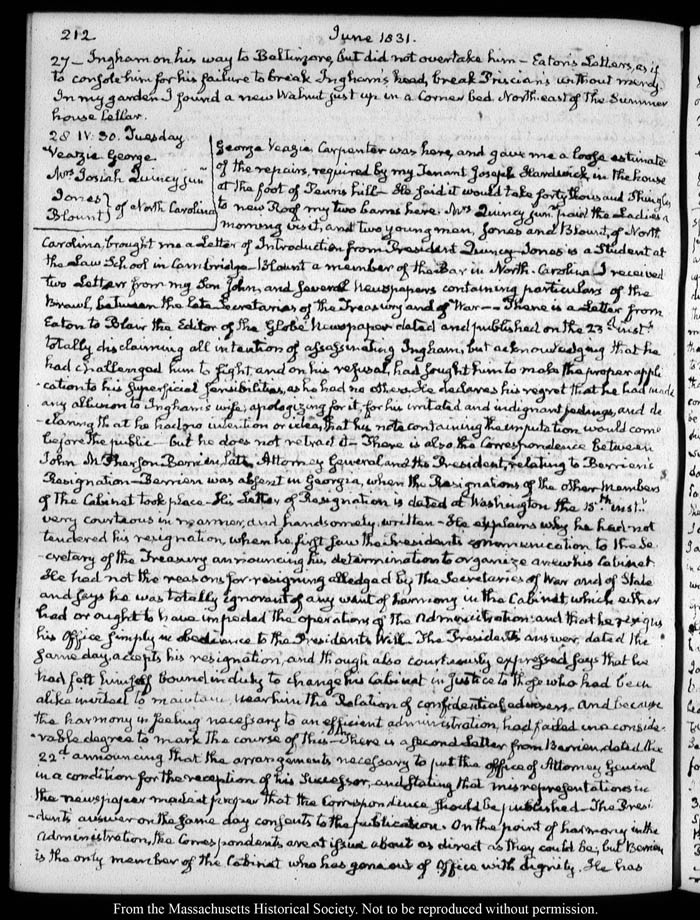 212
June 1831.
27 – Ingham on his way to Baltimore, but did not overtake him – Eaton's Letters, as if
to console him for his failure to break Ingham's head, break Priscian's without mercy.
In my garden I found a new Walnut just up in a Corner bed North-east of the Summer
house Cellar.
28 IV: 30. Tuesday
Veazie George
Mrs Josiah Quincy junr
Jones
Blount } of North Carolina
George Veazie Carpenter was here, and gave me a loose estimate
of the repairs, required by my Tenant Joseph Hardwick in the house
at the foot of Penns hill – He said it would take forty thousand Shingles
to new Roof my two barns here. Mrs Quincy junr paid the Ladies a
morning visit, and two young men, Jones and Blount, of North
Carolina, brought me a Letter of Introduction from President Quincy – Jones is a Student at
the Law School in Cambridge – Blount a member of the Bar in North-Carolina. I received
two Letters from my Son John, and several Newspapers containing particulars of the
Brawl, between the late Secretaries of the Treasury and of War – There is a Letter from
Eaton to Blair the Editor of the Globe Newspaper dated and published on the 23d instt
totally disclaiming all intention of assassinating Ingham, but acknowledging that he
had challenged him to fight and on his refusal, had sought him to make the proper appli
-cation to his superficial sensibilities, as he had no other. He declares his regret that he had made
any allusion to Ingham's wife; apologizing for it, for his irritated and indignant feelings, and de
-claring that he had no intention or idea, that his note containing the imputation would come
before the public – but he does not retract it – There is also the Correspondence between
John McPherson Berrien, late Attorney General and the President, relating to Berrien's
Resignation – Berrien was absent in Georgia, when the Resignations of the other Members
of the Cabinet took place – His Letter of Resignation is dated at Washington the 15th inst.
very courteous in manner, and handsomely written – He explains why he had not
tendered his resignation, when he first saw the President's communication to the Se-
cretary of the Treasury announcing his determination to organize anew his Cabinet
He had not the reasons for resigning alledged by the Secretaries of War and of State
and says he was totally ignorant of any want of harmony in the Cabinet, which either
had or ought to have impeded the operations of the Administration: and that he resigns
his Office simply in obedience to the Presidents Will. The President's answer, dated the
same day, accepts his resignation, and though also courteously expressed says that he
had felt himself bound in duty to change his Cabinet in justice to those who had been
alike invited to maintain near him the Relation of confidential advisers. And because
the harmony in feeling necessary to an efficient administration, had failed in a conside-
-rable degree to mark the course of this – There is a second Letter from Berrien, dated the
22d announcing that the arrangements necessary to put the office of Attorney General
in a condition for the reception of his Successor, and stating that misrepresentations in
the newspapers made it proper that the Correspondence should be published – The Presi-
-dents answer on the same day consents to the publication. On the point of harmony in the
Administration, the Correspondents are at issue about as direct as they could be; but Berrien
is the only member of the Cabinet who has gone out of Office with dignity. He has
From the Massachusetts Historical Society. Not to be reproduced without permission.